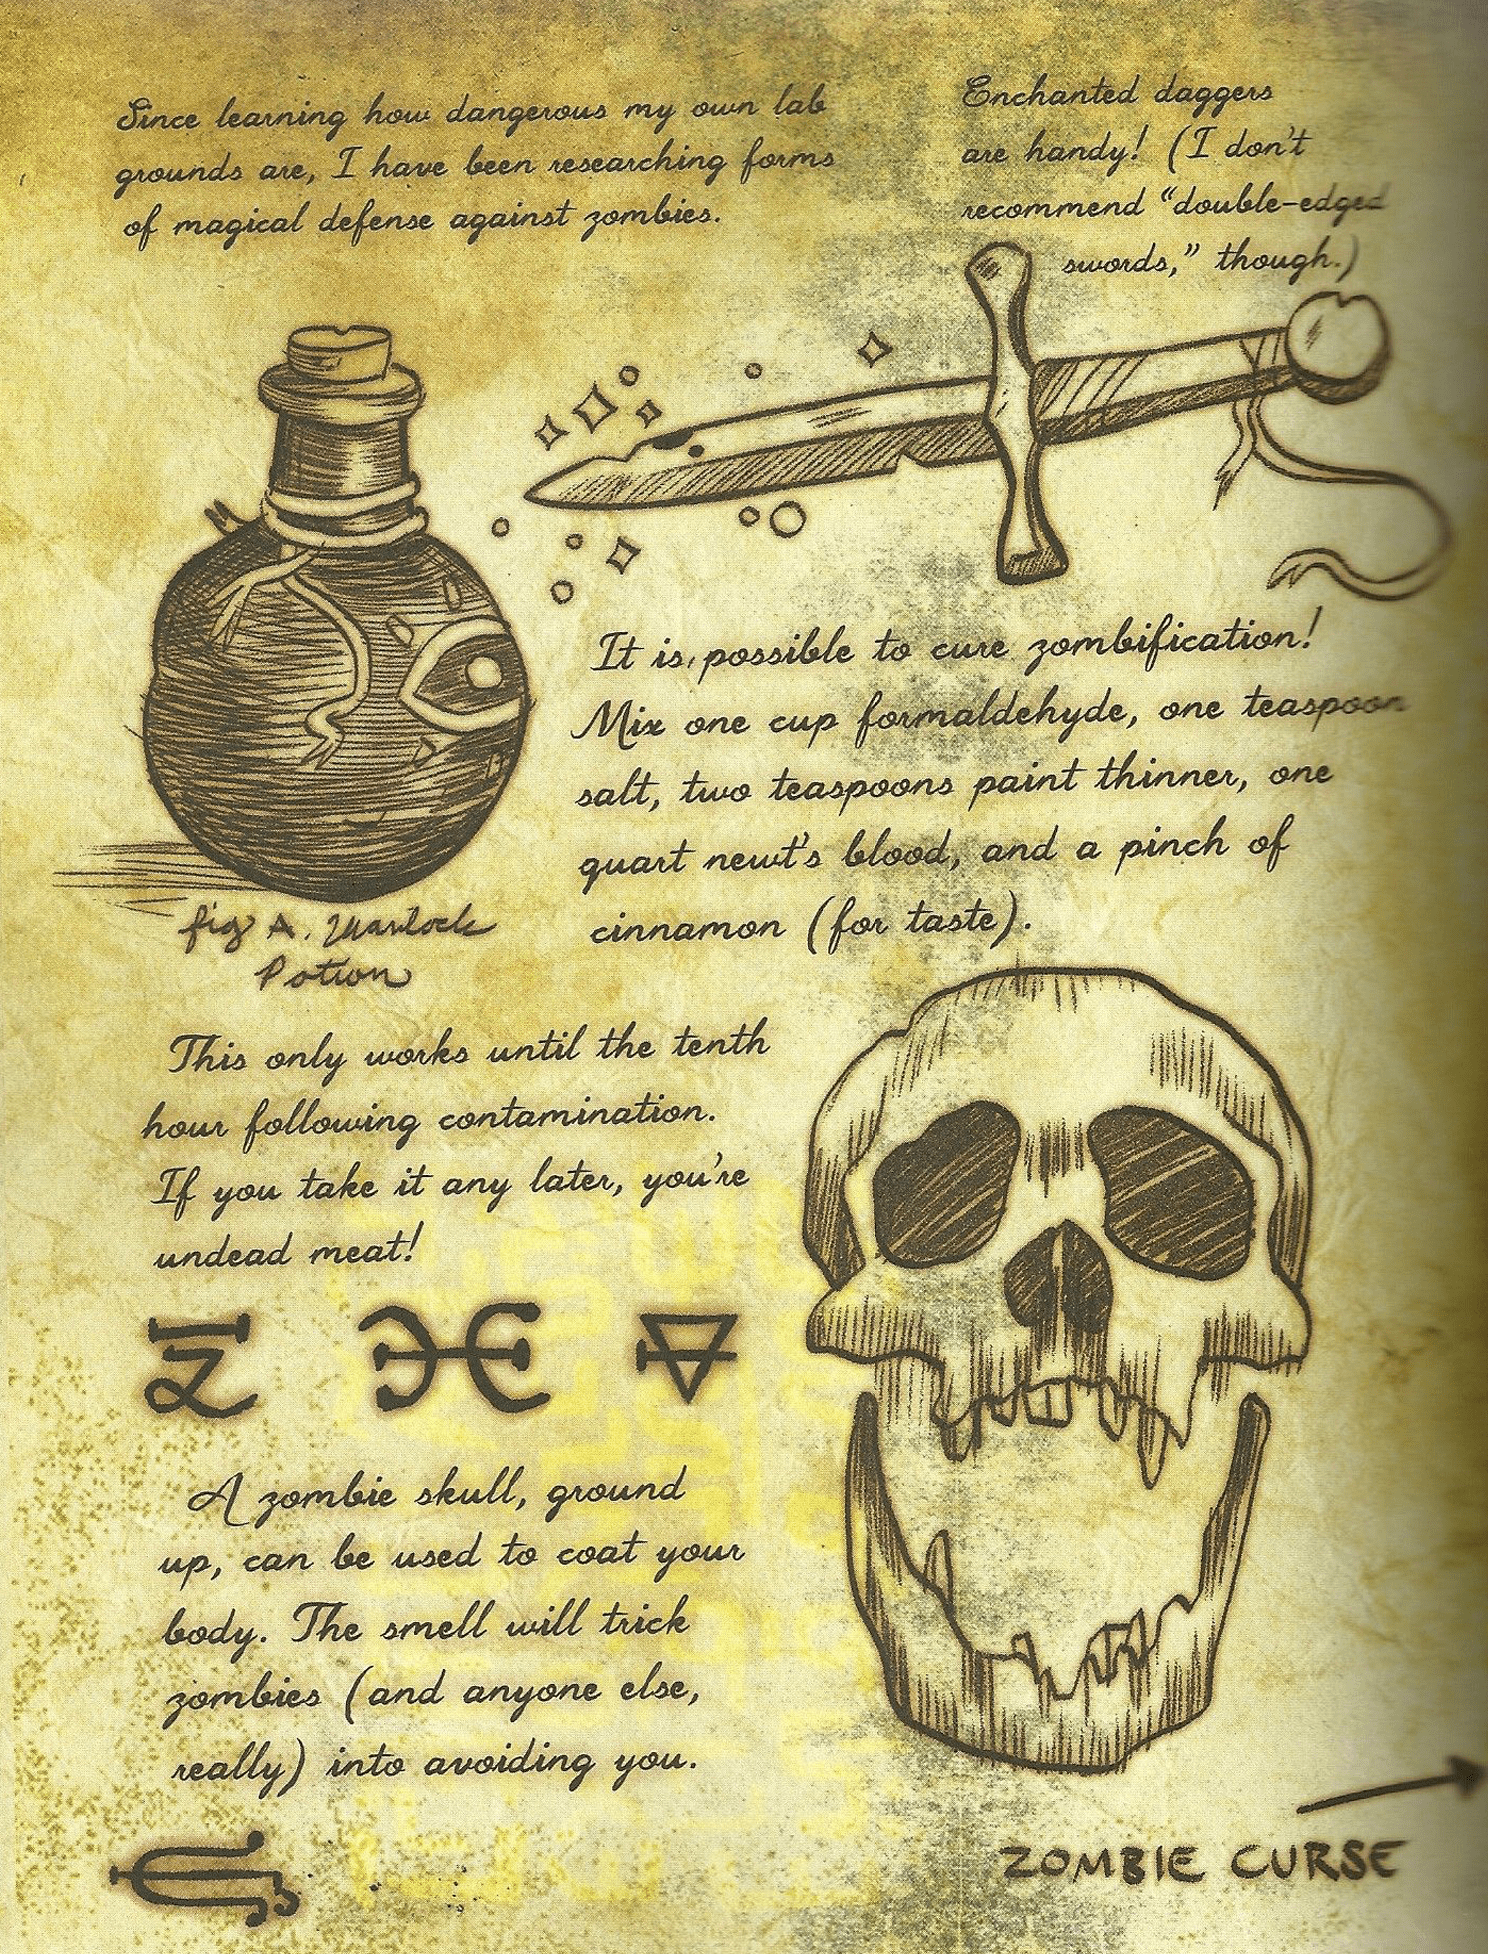 Since learning how dangerous my own lab
grounds are, I have been researching forms
of magical defense against zombies.
Enchanted daggers
are handy! (I don't
recommend "double-edged
swords," though.)
It is possible to cure zombification!
Mix one cup formaldehyde, one teaspoon
salt, two teaspoons paint thinner, one
quart newt's blood, and a pinch of
cinnamon (for taste).
fig A. Warlock
Potion
This only works until the tenth
hour following contamination.
If you take it any later, you're
undead meat!
A zombie skull, ground
up, can be used to coat your
body. The smell will trick
zombies (and anyone else,
really) into avoiding you.
ZOMBIE CURSE